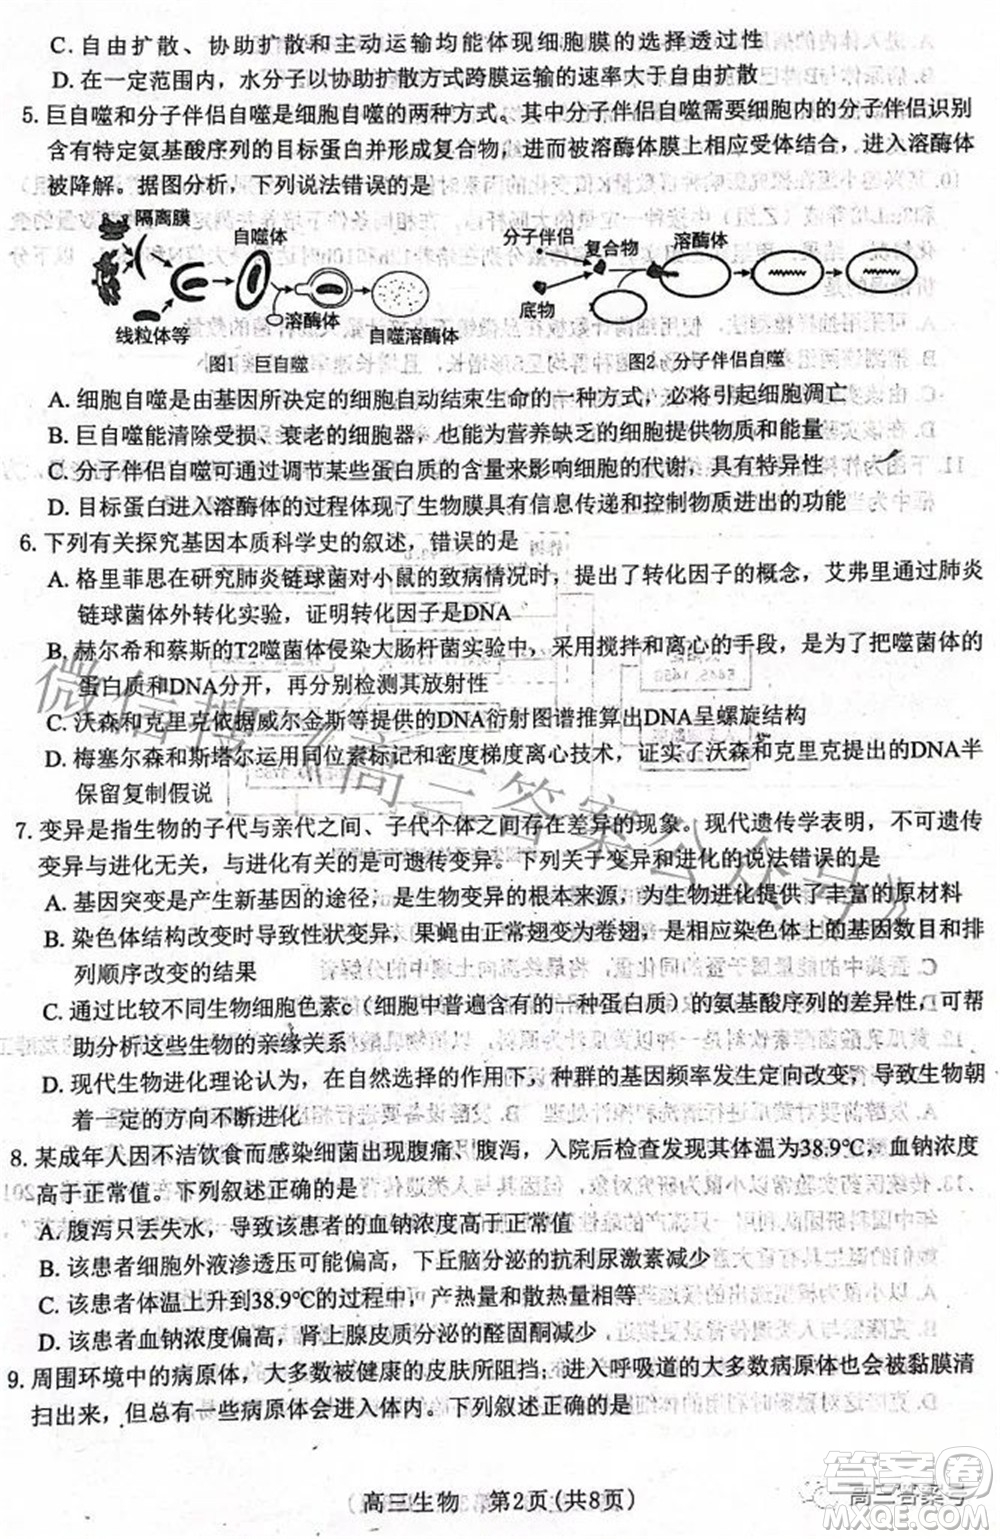 C. 自由扩散、协助扩散和主动运输均能体现细胞膜的选择透过性
D. 在一定范围内，水分子以协助扩散方式跨膜运输的速率大于自由扩散
5. 巨自噬和分子伴侣自噬是细胞自噬的两种方式。其中分子伴侣自噬需要细胞内的分子伴侣识别
含有特定氨基酸序列的目标蛋白并形成复合物，进而被溶酶体膜上相应受体结合，进入溶酶体
被降解。据图分析，下列说法错误的是
隔离膜
自噬体
线粒体等
溶酶体
自噬溶酶体
图1 巨自噬
分子伴侣
复合物
溶酶体
底物
图2 分子伴侣自噬
A. 细胞自噬是由基因所决定的细胞自动结束生命的一种方式，必将引起细胞凋亡
B. 巨自噬能清除受损、衰老的细胞器，也能为营养缺乏的细胞提供物质和能量
C. 分子伴侣自噬可通过调节某些蛋白质的含量来影响细胞的代谢，具有特异性
D. 目标蛋白进入溶酶体的过程体现了生物膜具有信息传递和控制物质进出的功能
6. 下列有关探究基因本质科学史的叙述，错误的是
A. 格里菲思在研究肺炎链球菌对小鼠的致病情况时，提出了转化因子的概念，艾弗里通过肺炎
链球菌体外转化实验，证明转化因子是DNA
B. 赫尔希和蔡斯的T2噬菌体侵染大肠杆菌实验中，采用搅拌和离心的手段，是为了把噬菌体的
蛋白质和DNA分开，再分别检测其放射性
C. 沃森和克里克依据威尔金斯等提供的DNA衍射图谱推算出DNA呈螺旋结构
D. 梅塞尔森和斯塔尔运用同位素标记和密度梯度离心技术，证实了沃森和克里克提出的DNA半
保留复制假说
7. 变异是指生物的子代与亲代之间、子代个体之间存在差异的现象。现代遗传学表明，不可遗传
变异与进化无关，与进化有关的是可遗传变异。下列关于变异和进化的说法错误的是
A. 基因突变是产生新基因的途径，是生物变异的根本来源，为生物进化提供了丰富的原材料
B. 染色体结构改变时导致性状变异，果蝇由正常翅变为卷翅，是相应染色体上的基因数目和排
列顺序改变的结果
C. 通过比较不同生物细胞色素c（细胞中普遍含有的一种蛋白质）的氨基酸序列的差异性，可帮
助分析这些生物的亲缘关系
D. 现代生物进化理论认为，在自然选择的作用下，种群的基因频率发生定向改变，导致生物朝
着一定的方向不断进化
8. 某成年人因不洁饮食而感染细菌出现腹痛、腹泻，入院后检查发现其体温为38.9℃，血钠浓度
高于正常值。下列叙述正确的是
A. 腹泻只丢失水，导致该患者的血钠浓度高于正常值
B. 该患者细胞外液渗透压可能偏高，下丘脑分泌的抗利尿激素减少
C. 该患者体温上升到38.9℃的过程中，产热量和散热量相等
D. 该患者血钠浓度偏高，肾上腺皮质分泌的醛固酮减少
9. 周围环境中的病原体，大多数被健康的皮肤所阻挡；进入呼吸道的大多数病原体也会被黏膜清
扫出来，但总有一些病原体会进入体内。下列叙述正确的是
高三生物 第2页(共8页)
微信搜《高三答案公众号》
高三答案号
答案圈
MXQE.COM